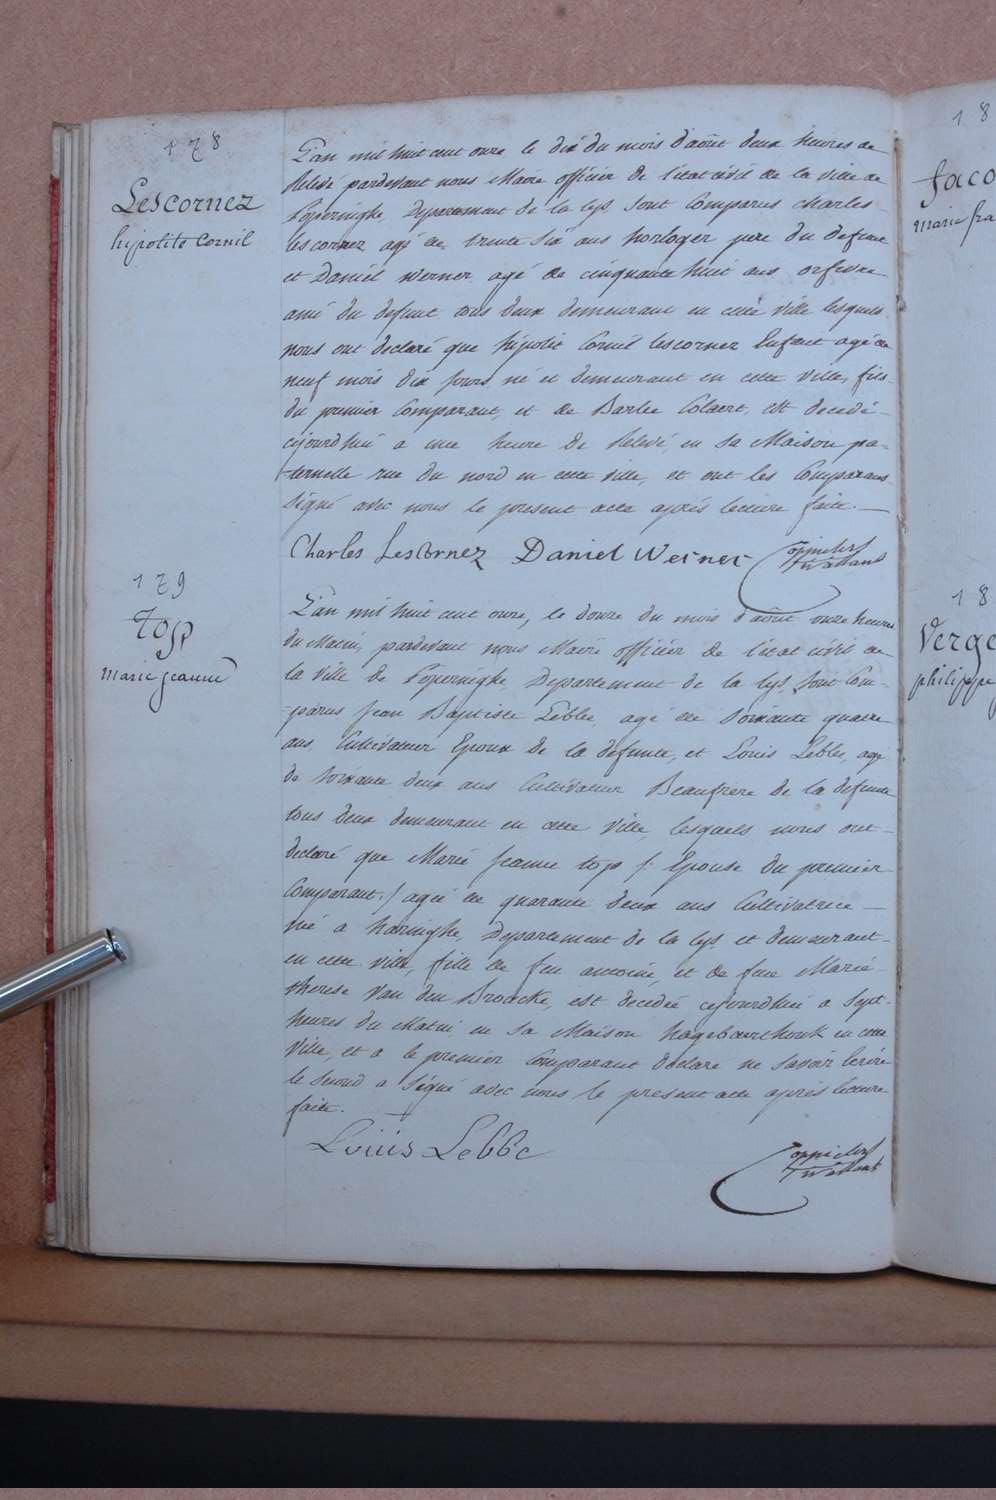 178
Lescornez
hipolite Cornil
L'an mil huit cent onze le dix du mois d'août deux heures de
Relevé pardevant nous Maire officier de l'etat civil de la ville de
Poperinghe, Departement de la Lys, sont Comparus Charles
Lescornez agé de trente six ans horloger pere du defunt
et Daniel Werner agé de cinquante huit ans orfevre
ami du defunt tous deux demeurant en cette ville lesquels
nous ont declaré que hipolit Cornil Lescornez Enfant agé de
neuf mois dix jours né et demeurant en cette ville, fils
du premier Comparant, et de Barbe Colaert, est decedé
cejourdhui a une heure de Relevé, en sa Maison pa-
ternelle rue du nord en cette ville, et ont les Comparans
signé avec nous le present acte après lecture faite.
Charles Lescornez Daniel Werner
179
Top
marie jeanne
L'an mil huit cent onze, le douze du mois d'août onze heures
du Matin, pardevant nous Maire officier de l'etat civil de
la ville de Poperinghe, Departement de la Lys, sont Com-
parus Jean Baptiste Lebbe, agé de soixante quatre
ans, Cultivateur Epoux de la defunte, et Louis Lebbe, agé
de soixante deux ans Cultivateur Beaufrere de la defunte
tous deux demeurant en cette ville, lesquels nous ont
declaré que Marie Jeanne top /: Epouse du premier
Comparant :/ agée de quarante deux ans Cultivatrice
née a haringhe, Departement de la Lys et demeurant
en cette ville, fille de feu antoine, et de feue Marie
therese Van den Broucke, est decedée cejourdhui a sept
heures du Matin en sa Maison hagebaerthouk en cette
Ville, et a le premier Comparant declaré ne savoir Ecrire
le second a signé avec nous le present acte après lecture
faite.
Louis Lebbe
18
Jaco
marie fra
18
Verge
philippe